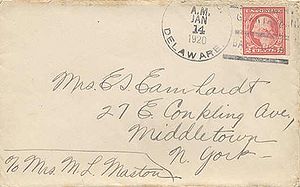 A.M.
JAN
14
1920
DELAWARE
Mrs. E S Earnhardt
27 E. Conkling Ave,
Middletown
N. York
c/o Mrs. M L Maston